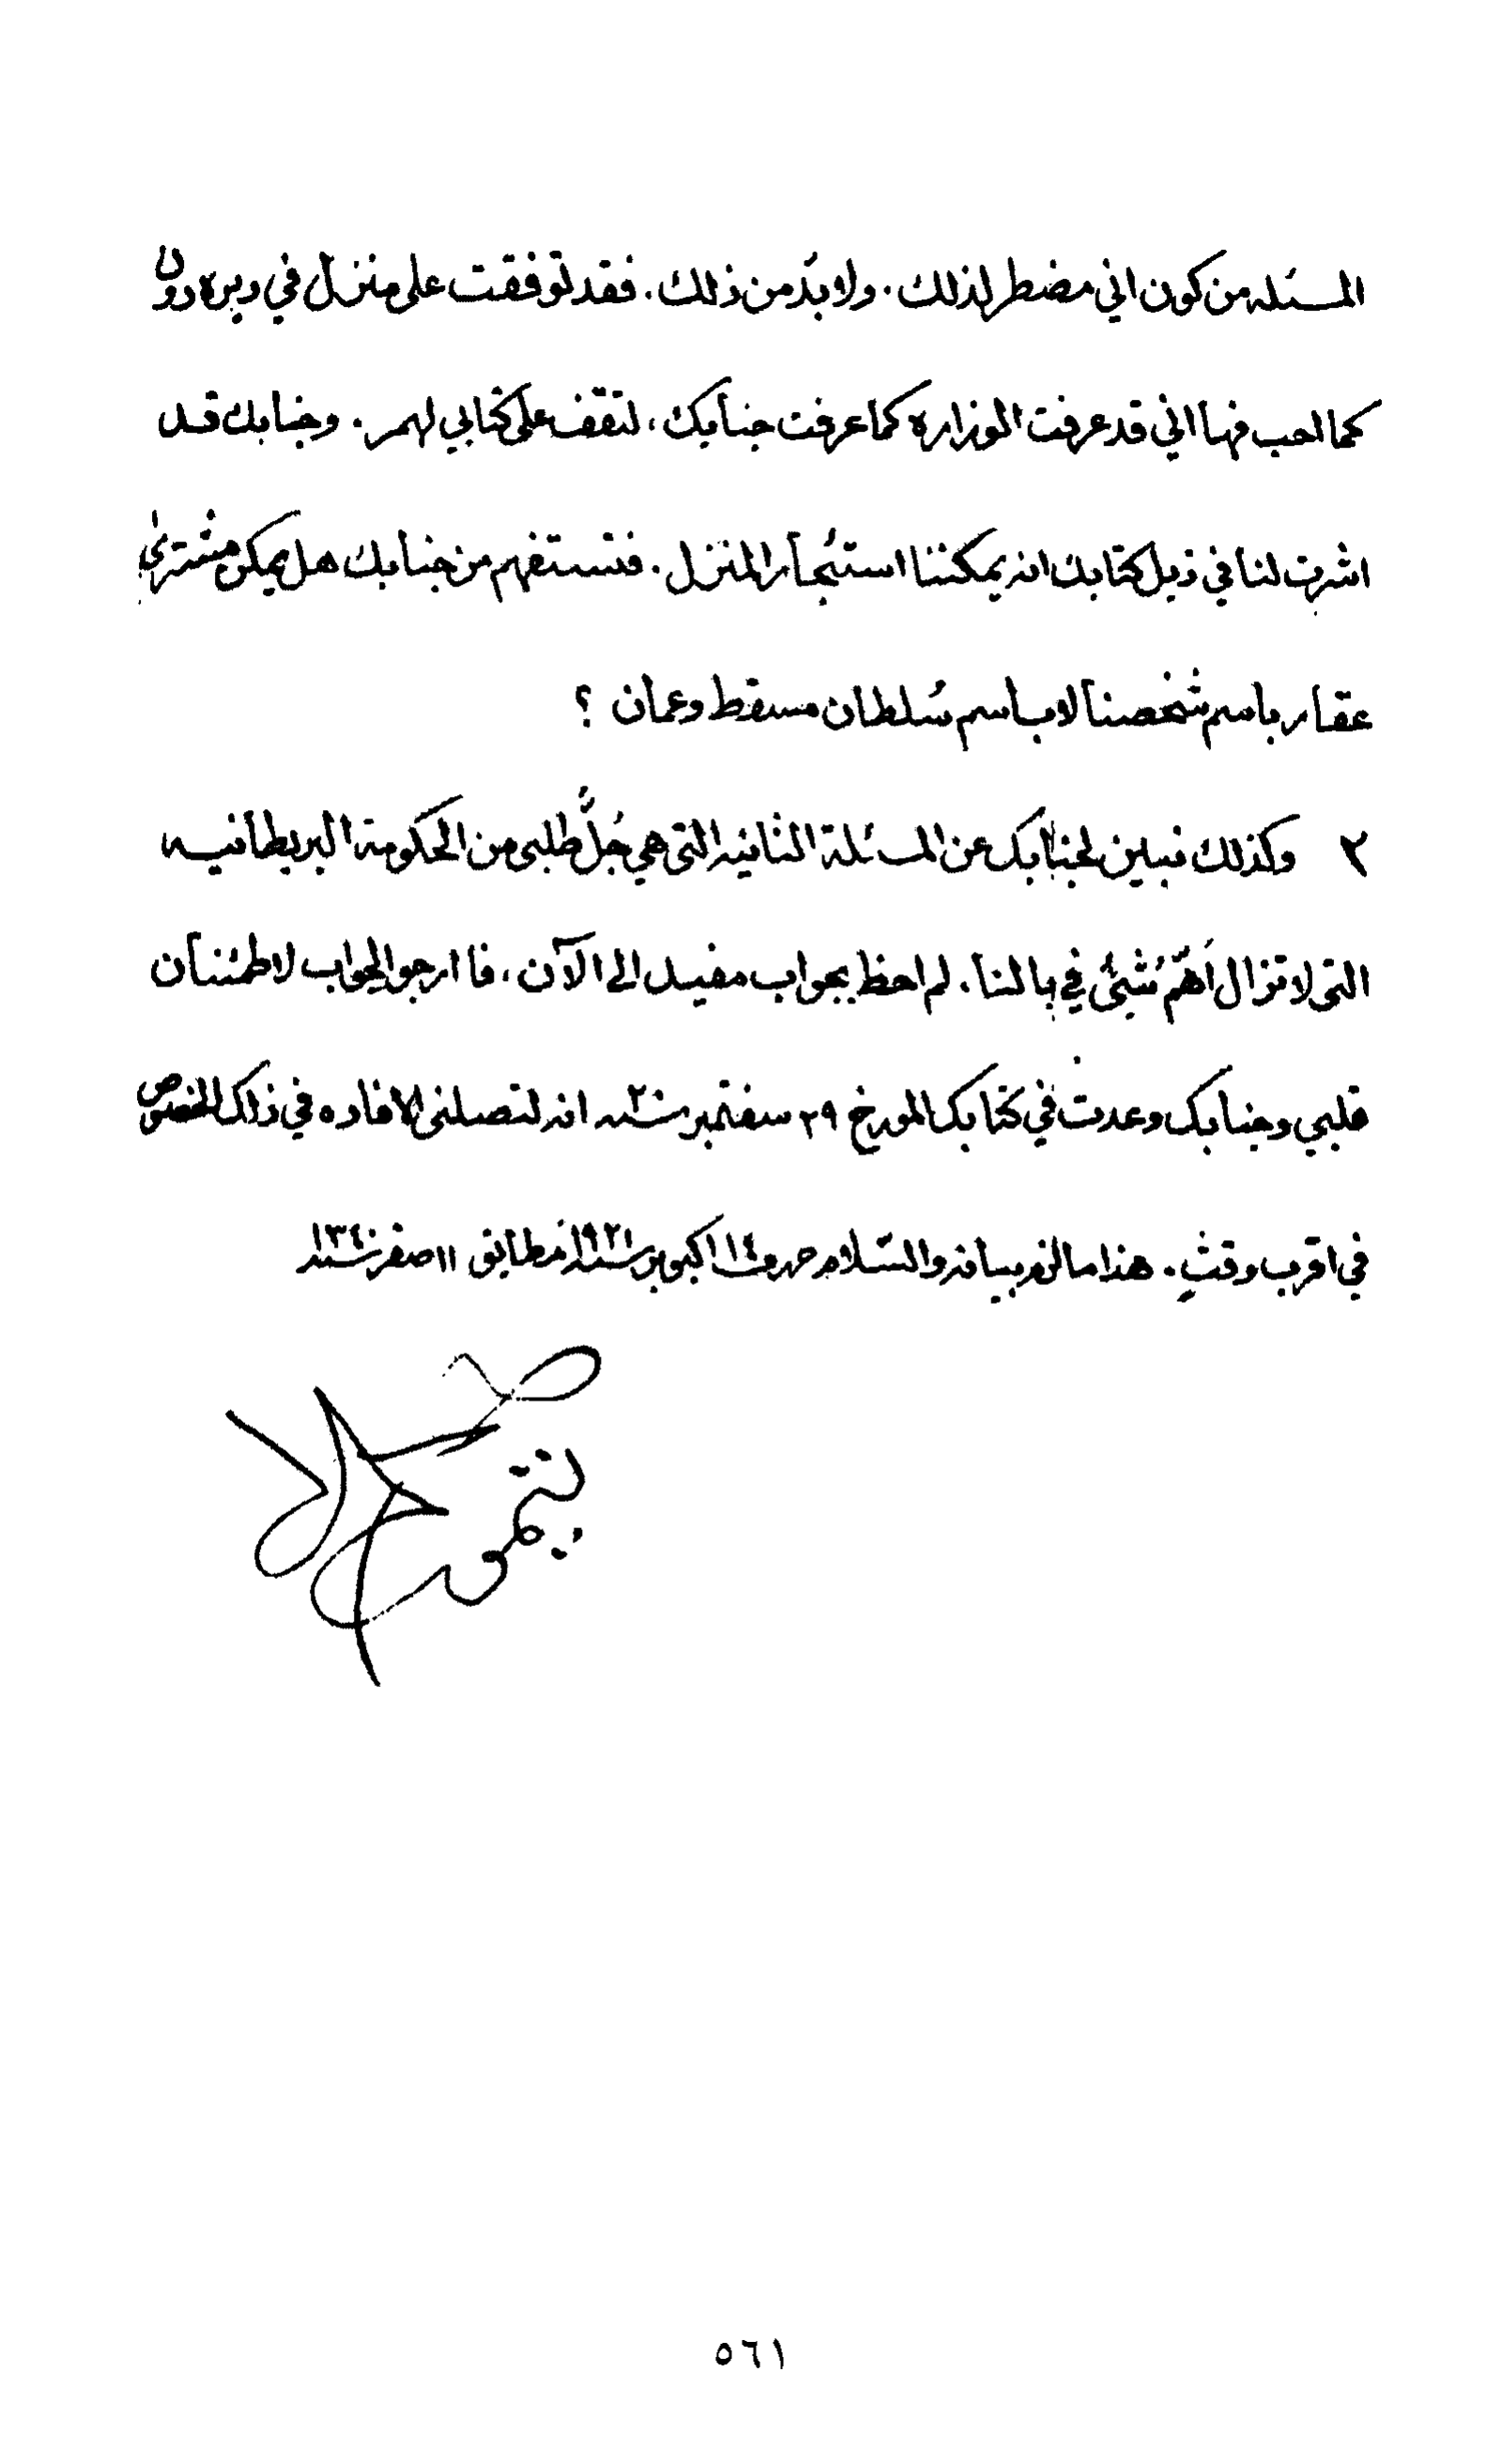 المسئله من كون اني مضطر لذلك. ولا بدّ من ذلك. فقد توفقت على منزل في ديره دون
كما احب فيها اني قد عرفت الوزاره كما عرفت جنابك، لتقف على كتابي لهم. وجنابك قد
اشرت لنا في ذيل كتابك انه يمكننا استئجار المنزل. فنستفهم من جنابك هل يمكن مشترى
عقار باسم شخصنا لا باسم سُلطان مسقط وعمان ؟
٢ وكذلك نبين لجنابك عن المسئلة الثانيه التي هي جُلُّ طلبي من الحكومة البريطانيه
التي لا تزال اَهمّ شيئ في بالنا، لم احظ بجواب مفيد الى الآن، فا ارجو الجواب لاطمئنان
قلبي وجنابك وعدت في كتابك المورخ ٢٩ سفتمبر سنه ٢١ انه لتصلني الافاده في ذلك الخصوص
في اقرب وقت. هذا ما لزم بيانه والسّلام حرر ١٤ اكتوبر سنه ١٩٢١ مطابق ١١ صفر سنه ١٣٤٠
تيمور
٥٦١